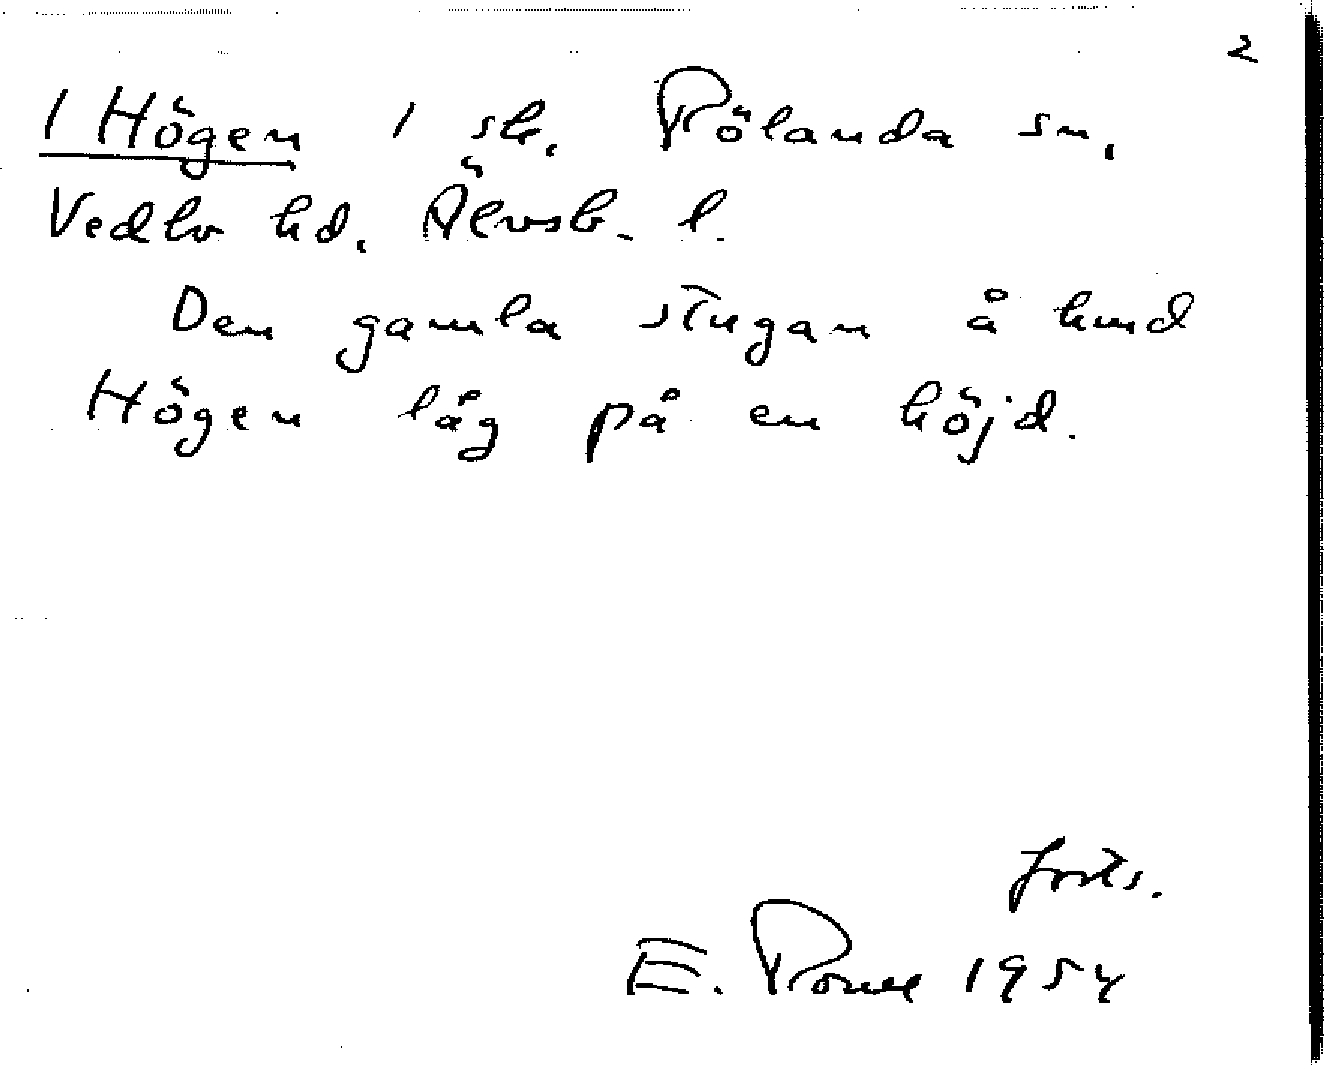 2
1 Högen 1 sk. Rölanda sn,
Vedbo hd, Älvsb. l.
Den gamla stugan å hmd
Högen låg på en höjd.
forts.
E. Rome 1954